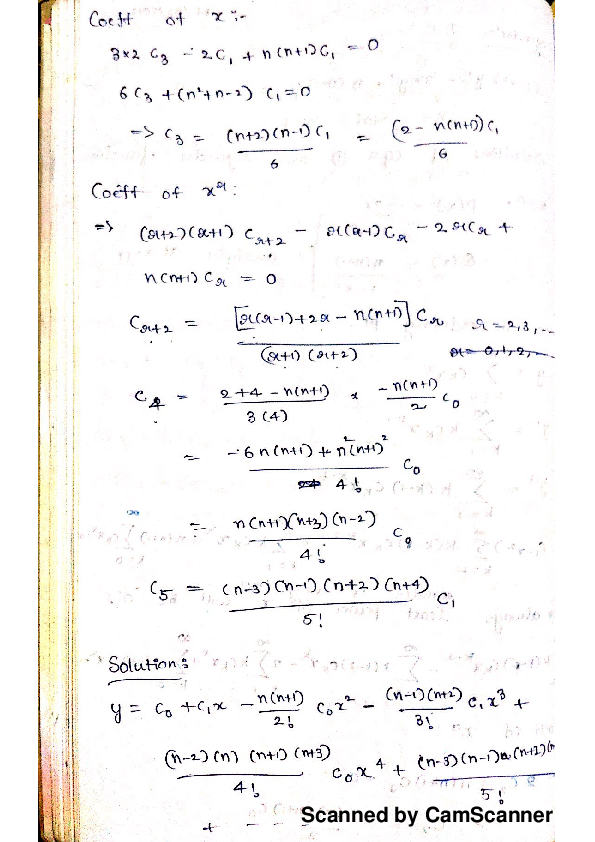 Coeff of x :-
3×2 C₃ - 2C₁ + n(n+1)C₁ = 0
6C₃ + (n²+n-2) C₁ = 0
=> C₃ = (n+2)(n-1)C₁ / 6 = (2 - n(n+1))C₁ / 6
Coeff of xʳ :
=> (r+2)(r+1) Cᵣ₊₂ - r(r-1)Cᵣ - 2rCᵣ +
n(n+1) Cᵣ = 0
Cᵣ₊₂ = [r(r-1)+2r - n(n+1)] Cᵣ / (r+1)(r+2) r = 2,3,...
r = 0,1,2,...
C₄ = 2+4 - n(n+1) / 3(4) × -n(n+1) / 2 C₀
= -6n(n+1) + n²(n+1)² / 4! C₀
= n(n+1)(n+3)(n-2) / 4! C₀
C₅ = (n-3)(n-1)(n+2)(n+4) / 5! C₁
Solution :
y = C₀ + C₁x - n(n+1) / 2! C₀x² - (n-1)(n+2) / 3! C₁x³ +
(n-2)(n)(n+1)(n+3) / 4! C₀x⁴ + (n-3)(n-1)(n+2)(n / 5!
+ - - -
Scanned by CamScanner